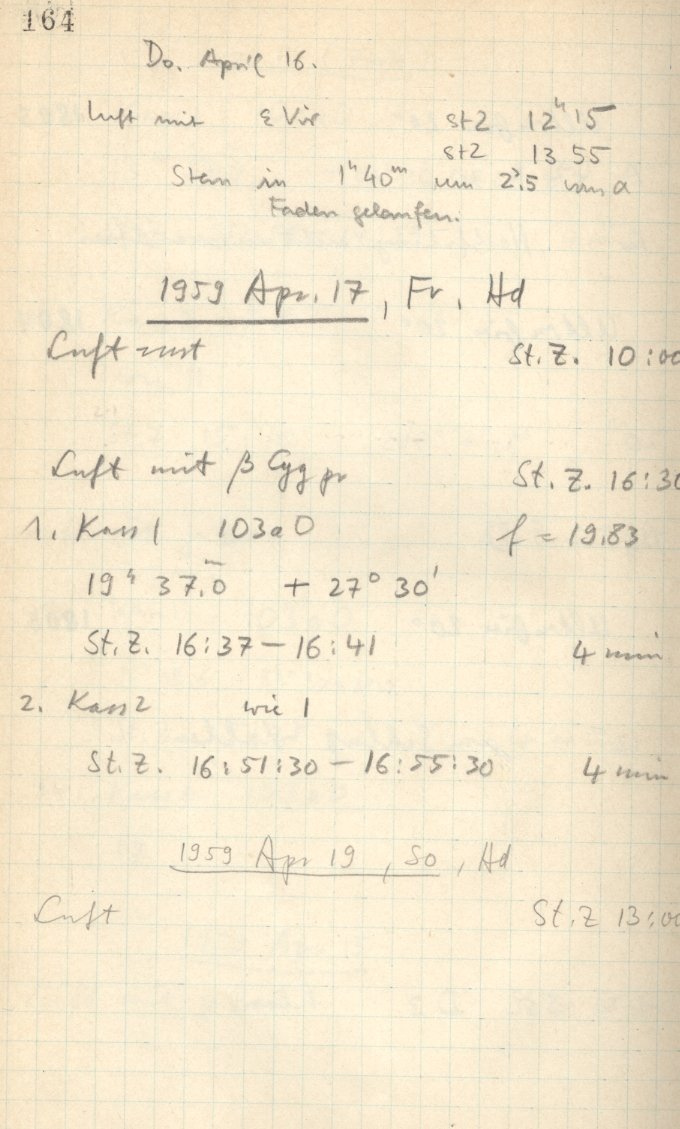 164
Do. April 16.
Luft mit ε Vir StZ 12ʰ 15
StZ 13 55
Stern in 1ʰ 40ᵐ um 2ˢ.5 vom
Faden gelaufen.
1959 Apr. 17, Fr. Hd
Luft St.Z. 10:00
Luft mit β Cyg pr St.Z. 16:30
1. Kass 1 103a0 f = 19.83
19ʰ 37.ᵐ0 + 27° 30'
St.Z. 16:37 – 16:41 4 min
2. Kass 2 wie 1
St.Z. 16:51:30 – 16:55:30 4 min
1959 Apr 19, So, Hd
Luft St.Z 13:00